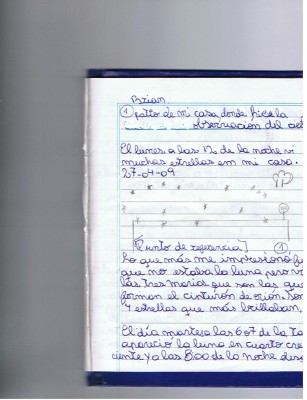 Brian
① patio de mi casa donde hice la
observacion del cie
El lunes a las 12 de la noche vi
muchas estrellas em mi casa.
27-04-09
[Punto de referencia] ①
Lo que más me impresionó fu
que no estaba la luna pero vi
las tres marias que son las que
forman el cinturón de orión. Son
estrellas que más brillaban.
El día martes a las 6:07 de la ta
apareció la luna en cuarto cre
ciente y a las 8:00 de la noche des